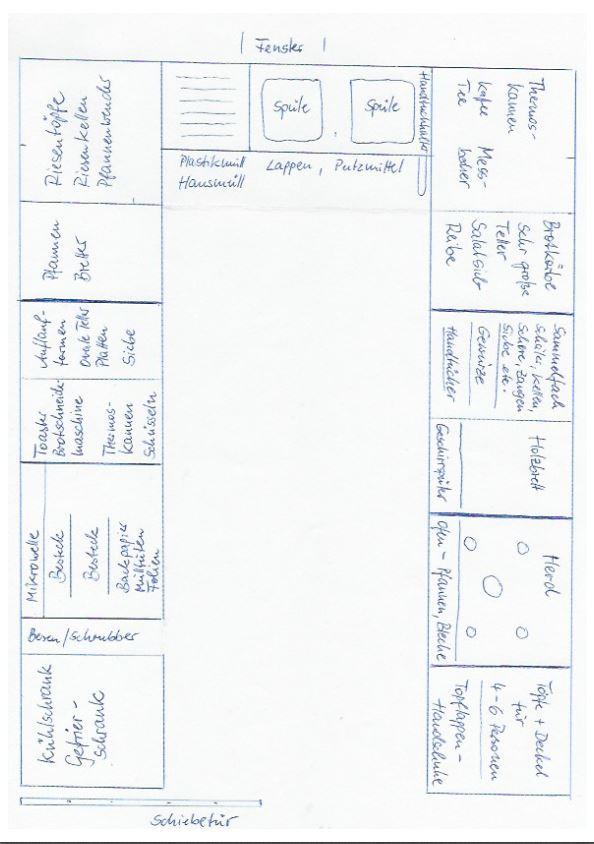 Fenster
Riesentöpfe
Riesenkellen
Pfannenwender
Spüle
Spüle
Handtuchhalter
Plastikmüll
Hausmüll
Lappen, Putzmittel
Thermos-
kannen
Kaffee Mess-
Tee becher
Pfannen
Bretter
Brotkörbe
Sehr große
Teller
Salatsieb
Reibe
Auflauf-
formen
Ovale Teller
Platten
Siebe
Sammelfach
Schäler, Kellen,
Schere, Zangen
Siebe etc.
Gewürze
Handtücher
Toaster
Brotschneide-
maschine
Thermos-
kannen
Schüsseln
Holzbrett
Geschirrspüler
Mikrowelle
Besteck
Besteck
Backpapier
Mülltüten
Folien
Herd
Ofen - Pfannen, Bleche
Besen/Schrubber
Kühlschrank
Gefrier-
schrank
Töpfe + Deckel
für
4-6 Personen
Topflappen-
Handschuhe
Schiebetür